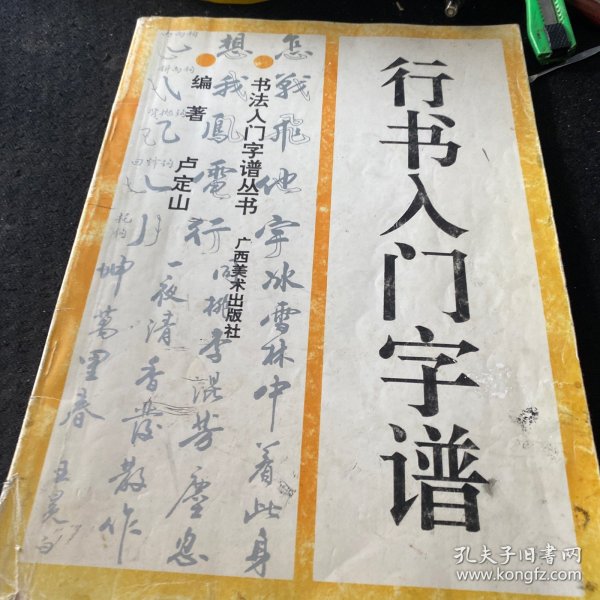 行书入门字谱
书法入门字谱丛书
广西美术出版社
编著 卢定山
怎戰飛他宇冰雪林中着此身
想我鳳電行 李混芳塵忽
一夜清香發散作
坤萬里春 王冕句
孔夫子旧书网
www.kongfz.com